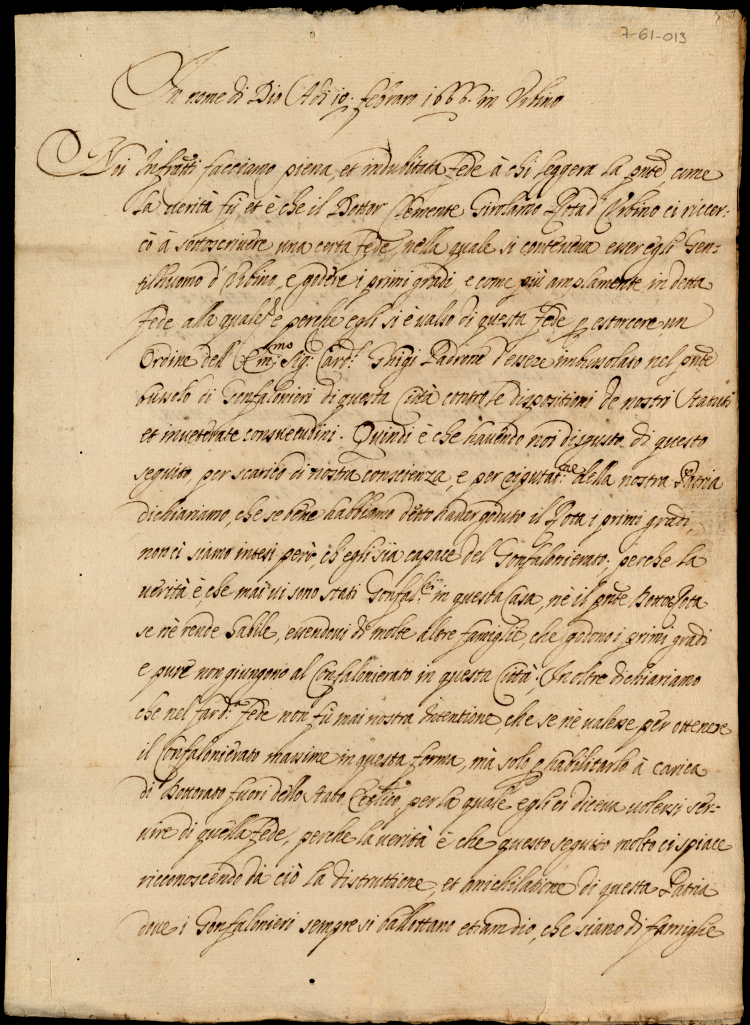 7-61-013
In nome di Dio Adi 10. febraro 1666. in Urbino
Noi Infratti facciamo piena, et indubitata fede à chi leggerà la pnte, come
la verità fù, et è che il Dottor Clemente Girolamo Rota d'Urbino ci ricer-
cò à sottoscrivere una certa fede, nella quale si conteneva esser egli Gen-
tilhuomo d'Urbino, e godere i primi gradi, e come più amplamente in detta
fede alla quale &c e perche egli si è valso di questa fede p estorcere un
Ordine dell' Em.mo Sig. Card.l Ghigi Padrone d'essere imbussolato nel pnte
bussolo di Gonfalonieri di questa Città contro le dispositioni de nostri Statuti
et inveterate consuetudini. Quindi è che havendo noi disgusto di questo
seguito, per scarico di nostra conscienza, e per reputat.ne della nostra Patria
dichiariamo, che se bene habbiamo detto haver goduto il Rota i primi gradi,
non ci siamo intesi però, ch'egli sia capace del Gonfalonierato, perche la
verità è che mai vi sono stati Gonfal.ri in questa Casa, nè il pnte Dottor Rota
se nè rende habile, essendovi di molte altre famiglie, che godono i primi gradi
e pure non giungono al Confalonierato in questa Città; Inoltre dichiariamo
che nel far d.a fede non fù mai nostra Intentione, che se nè valesse per ottenere
il Confalonierato massime in questa forma, mà solo p habilitarlo à carica
di Dottorato fuori dello Stato Ecc.lico, per la quale egli ci diceva volersi ser-
vire di quella fede, perche la verità è che questo seguito molto ci spiace
riconoscendo da ciò la distruttione, et anichilatione di questa Patria
dove i Gonfalonieri sempre si ballottano etiamdio, che siano di famiglie